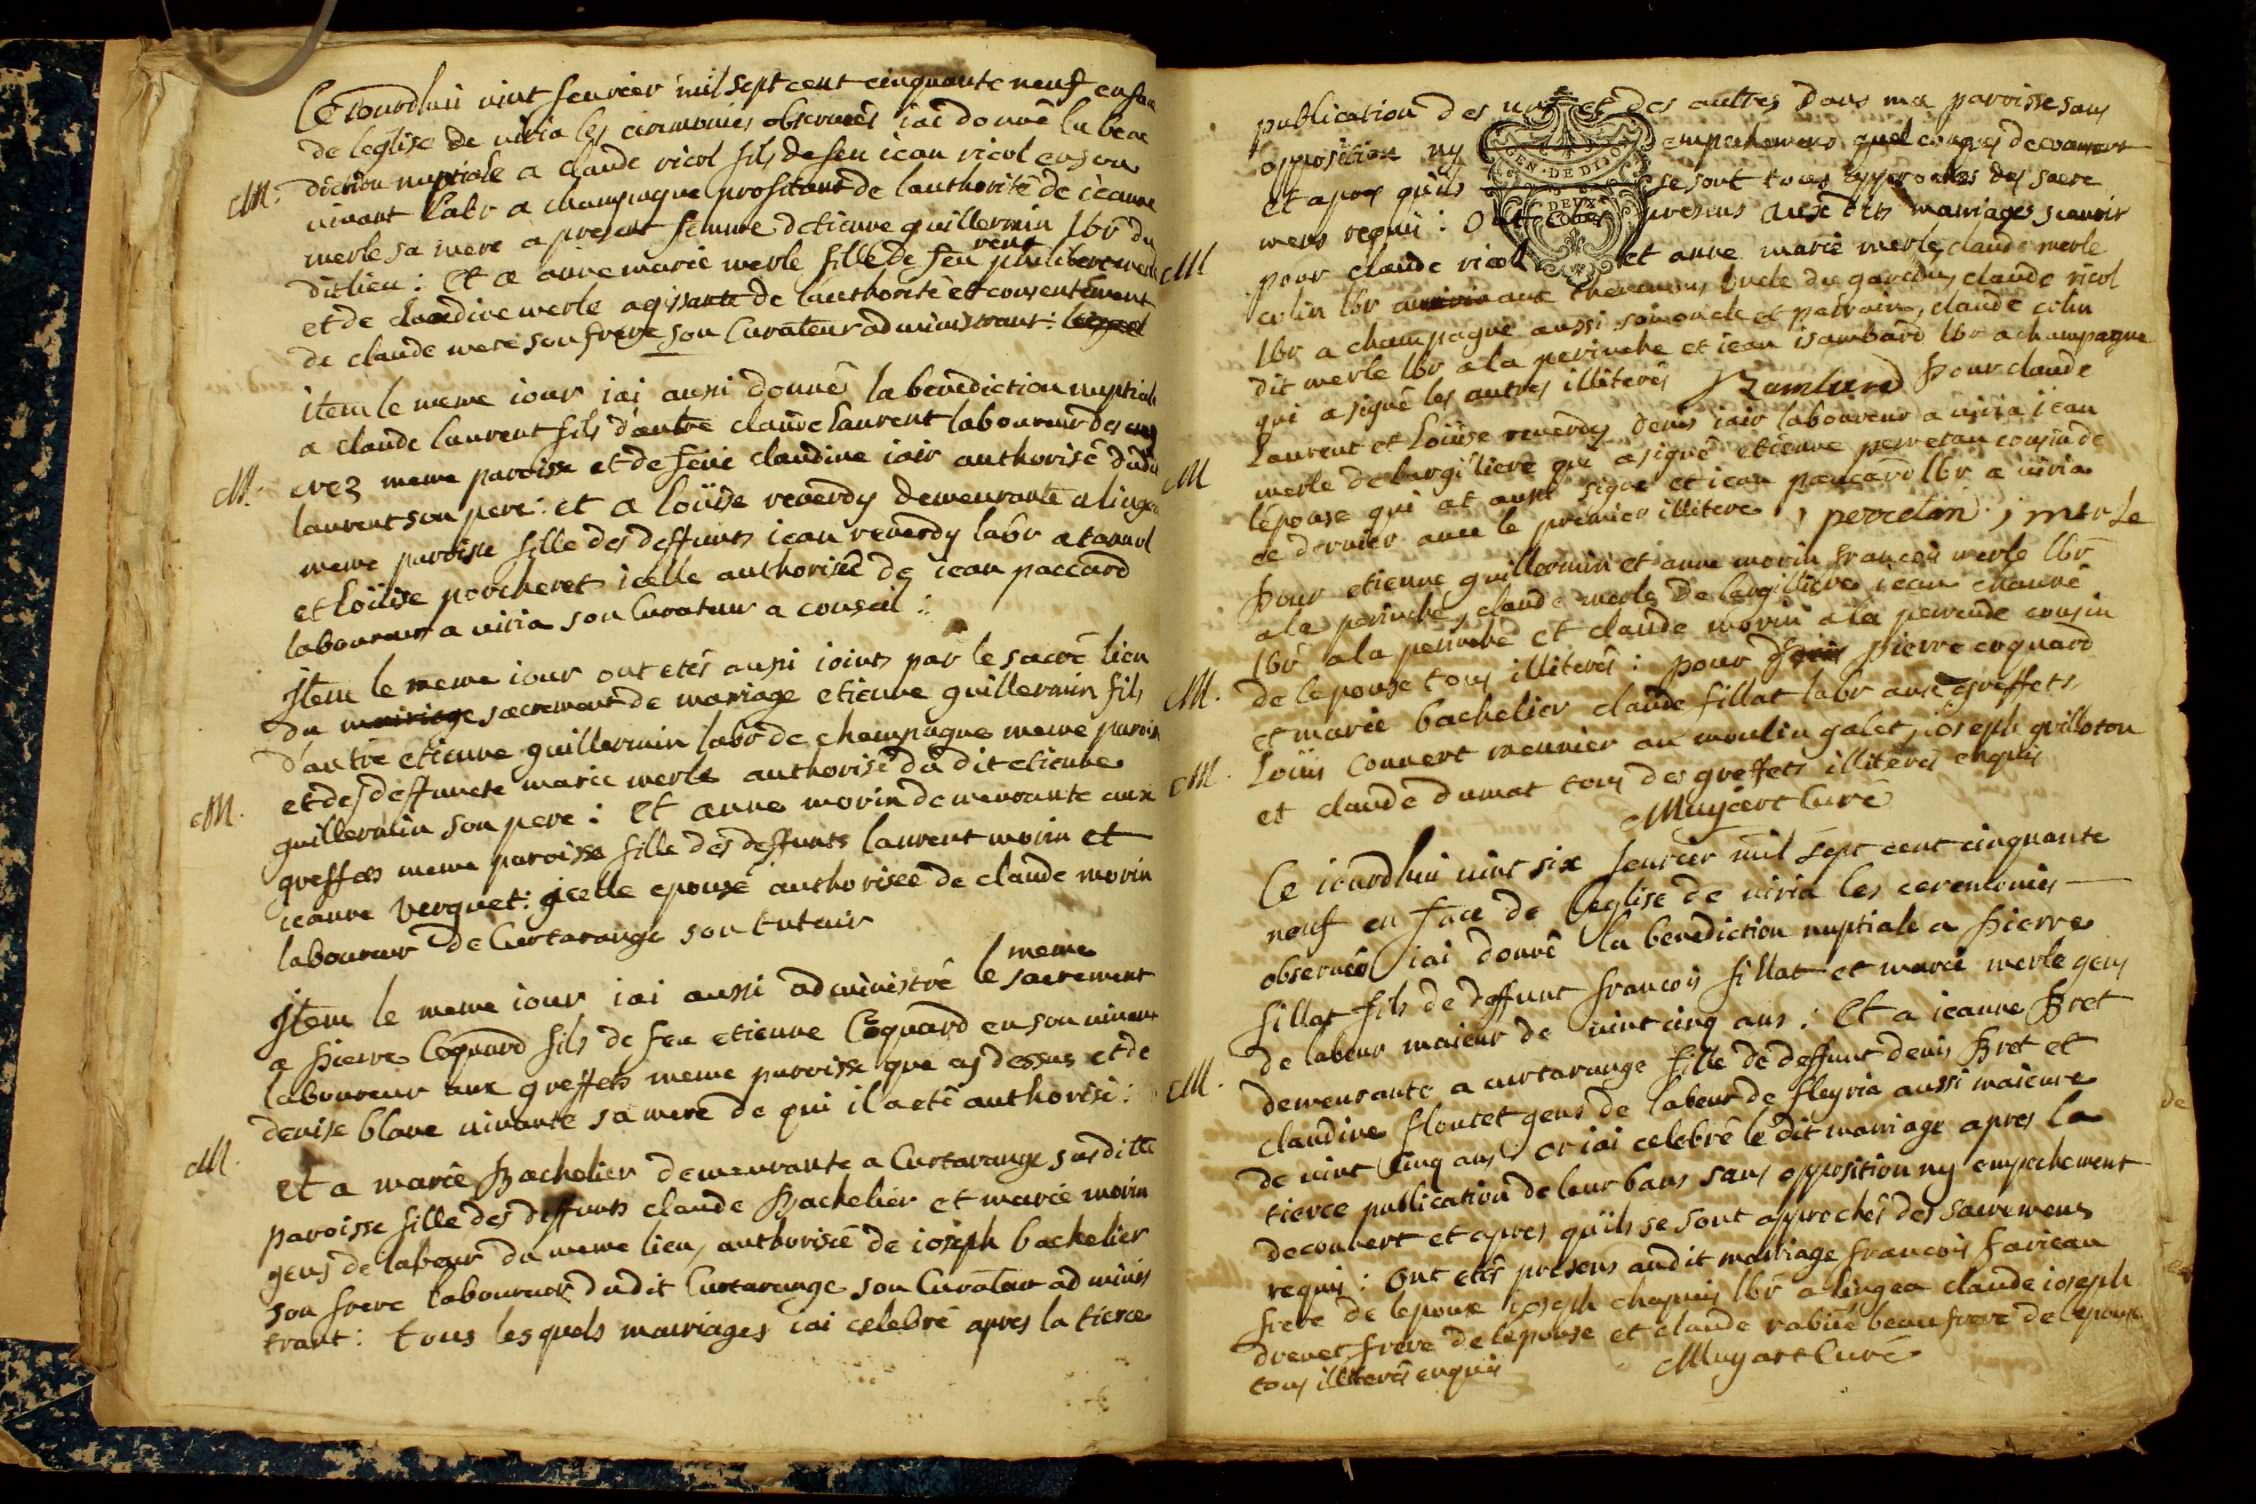 Ce iourdhui vint feurier mil sept cent cinquante neuf en face
de leglise de viria les ceremonies obseruées iai donné la bene
M. diction nuptiale a claude ricol fils de feu iean ricol en son
viuant labr a champagne profitant de lauthorité de ieanne
merle sa mere a present femme detienne guillermin lbr du
dit lieu : Et a anne marie merle fille de feu philibert merle
et de claudine merle agissante de lauthorité et consentement
de claude merle son frere son Curateur administrant :
item le meme iour iai aussi donnés la benediction nuptiale
a claude laurent fils dautre claude laurent laboureur des
M. crez meme paroisse et de feüe claudine iair authorisé dudit
laurent son pere : et a loüise reuerdy demeurante a lingea
meme paroisse fille des deffunts iean reuerdy labr a
et loüise porcheret icelle authorisée de iean paccard
laboureur a viria son Curateur a conseil :
Item le meme iour ont etés aussi joints par le sacré lien
du mairiage sacrement de mariage etienne guillermin fils
d'autre etienne guillermin labr de champagne meme paroisse
M. et de deffuncte marie merle authorisé du dit etienne
guillermin son pere : et anne morin demeurante aux
greffets meme paroisse fille des deffunts laurent morin et
ieanne verguet : icelle epouse authorisée de claude morin
laboureur de Curtarange son tuteur
Item le meme iour iai aussi administré le meme sacrement
a pierre Coquard fils de feu etienne Coquard en son viuant
laboureur aux greffets meme paroisse que cy dessus et de
denise blanc viuante sa mere de qui il a eté authorisé :
M. et a marie Bachelier demeurante a Curtarange susditte
paroisse fille des deffunts claude Bachelier et marie morin
gens de labeur du meme lieu, authorisée de ioseph bachelier
son frere laboureur dudit Curtarange son Curateur adminis
trant : tous lesquels mairiages iai celebré apres la tierce
publication des uns et des aultres dans ma paroisse sans
opposition ny empechemens quelconques decouuert
et apres quils se sont tous approchés des sacre
mens requis : Ont etés presens auxdits mariages scauoir
M pour claude ricol et anne marie merle, claude merle
colin lbr aux oncle du garcon, claude ricol
lbr a champagne aussi son oncle et parrain, claude colin
dit merle lbr a la perinche et iean isambard lbr a champagne
qui a signé les autres illiterés pour claude
M Laurent et Loüise reuerdy denis iair laboureur a viria iean
merle de largiliere qui a signé etienne perretan cousin de
lepouse qui at aussi signé et iean paccard lbr a viria
ce dernier auec le premier illiteré, j merle
pour etienne guillermin et anne morin francois merle lbr
a la perinche, claude merle de largilliere iean
lbr a la perinche et claude morin a la cousin
M. de lepouse tous illiterés : pour pierre coquard
et marie bachelier claude fillat labr aux greffets,
M. Loüis Conuert meunier au moulin galet, ioseph guilloton
et claude dumat tous des greffets illiterés enquis
Muyart Curé
Ce iourdhui vint six feurier mil sept cent cinquante
neuf en face de leglise de viria les ceremonies
obseruées iai donné la benediction nuptiale a pierre
fillat fils de deffunt francois fillat et marie merle gens
de labeur maieur de vint cinq ans : Et a ieanne Bret
M. demeurante a curtarange fille de deffunt denis Bret et
claudine floutet gens de labeur de fleyria aussi maieure
de vint cinq ans or iai celebré le dit mariage apres la
tierce publication de leur bans sans opposition ny empechement
decouuert et apres quils se sont approchés des sacremens
requis : Ont etés presens audit mariage francois
frere de lepoux ioseph chapuis lbr a lingea claude ioseph
dreuet frere de lepouse et claude rabüé beau frere de lepoux
tous illiterés enquis Muyart Curé
GEN · DE DIJON
DEUX